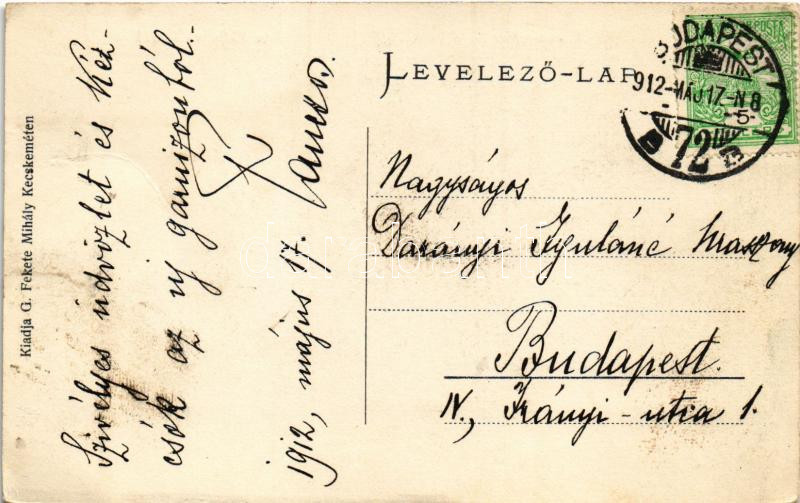 Kiadja G. Fekete Mihály Kecskeméten
Szivélyes üdvözlet és kéz-
csók az uj garnizonból.
1912, május 17.
LEVELEZŐ-LAP
BUDAPEST
912-MÁJ 17-N8
5
72
Nagyságos
Darányi Gyuláné
Budapest.
IV., Irányi-utca 1.